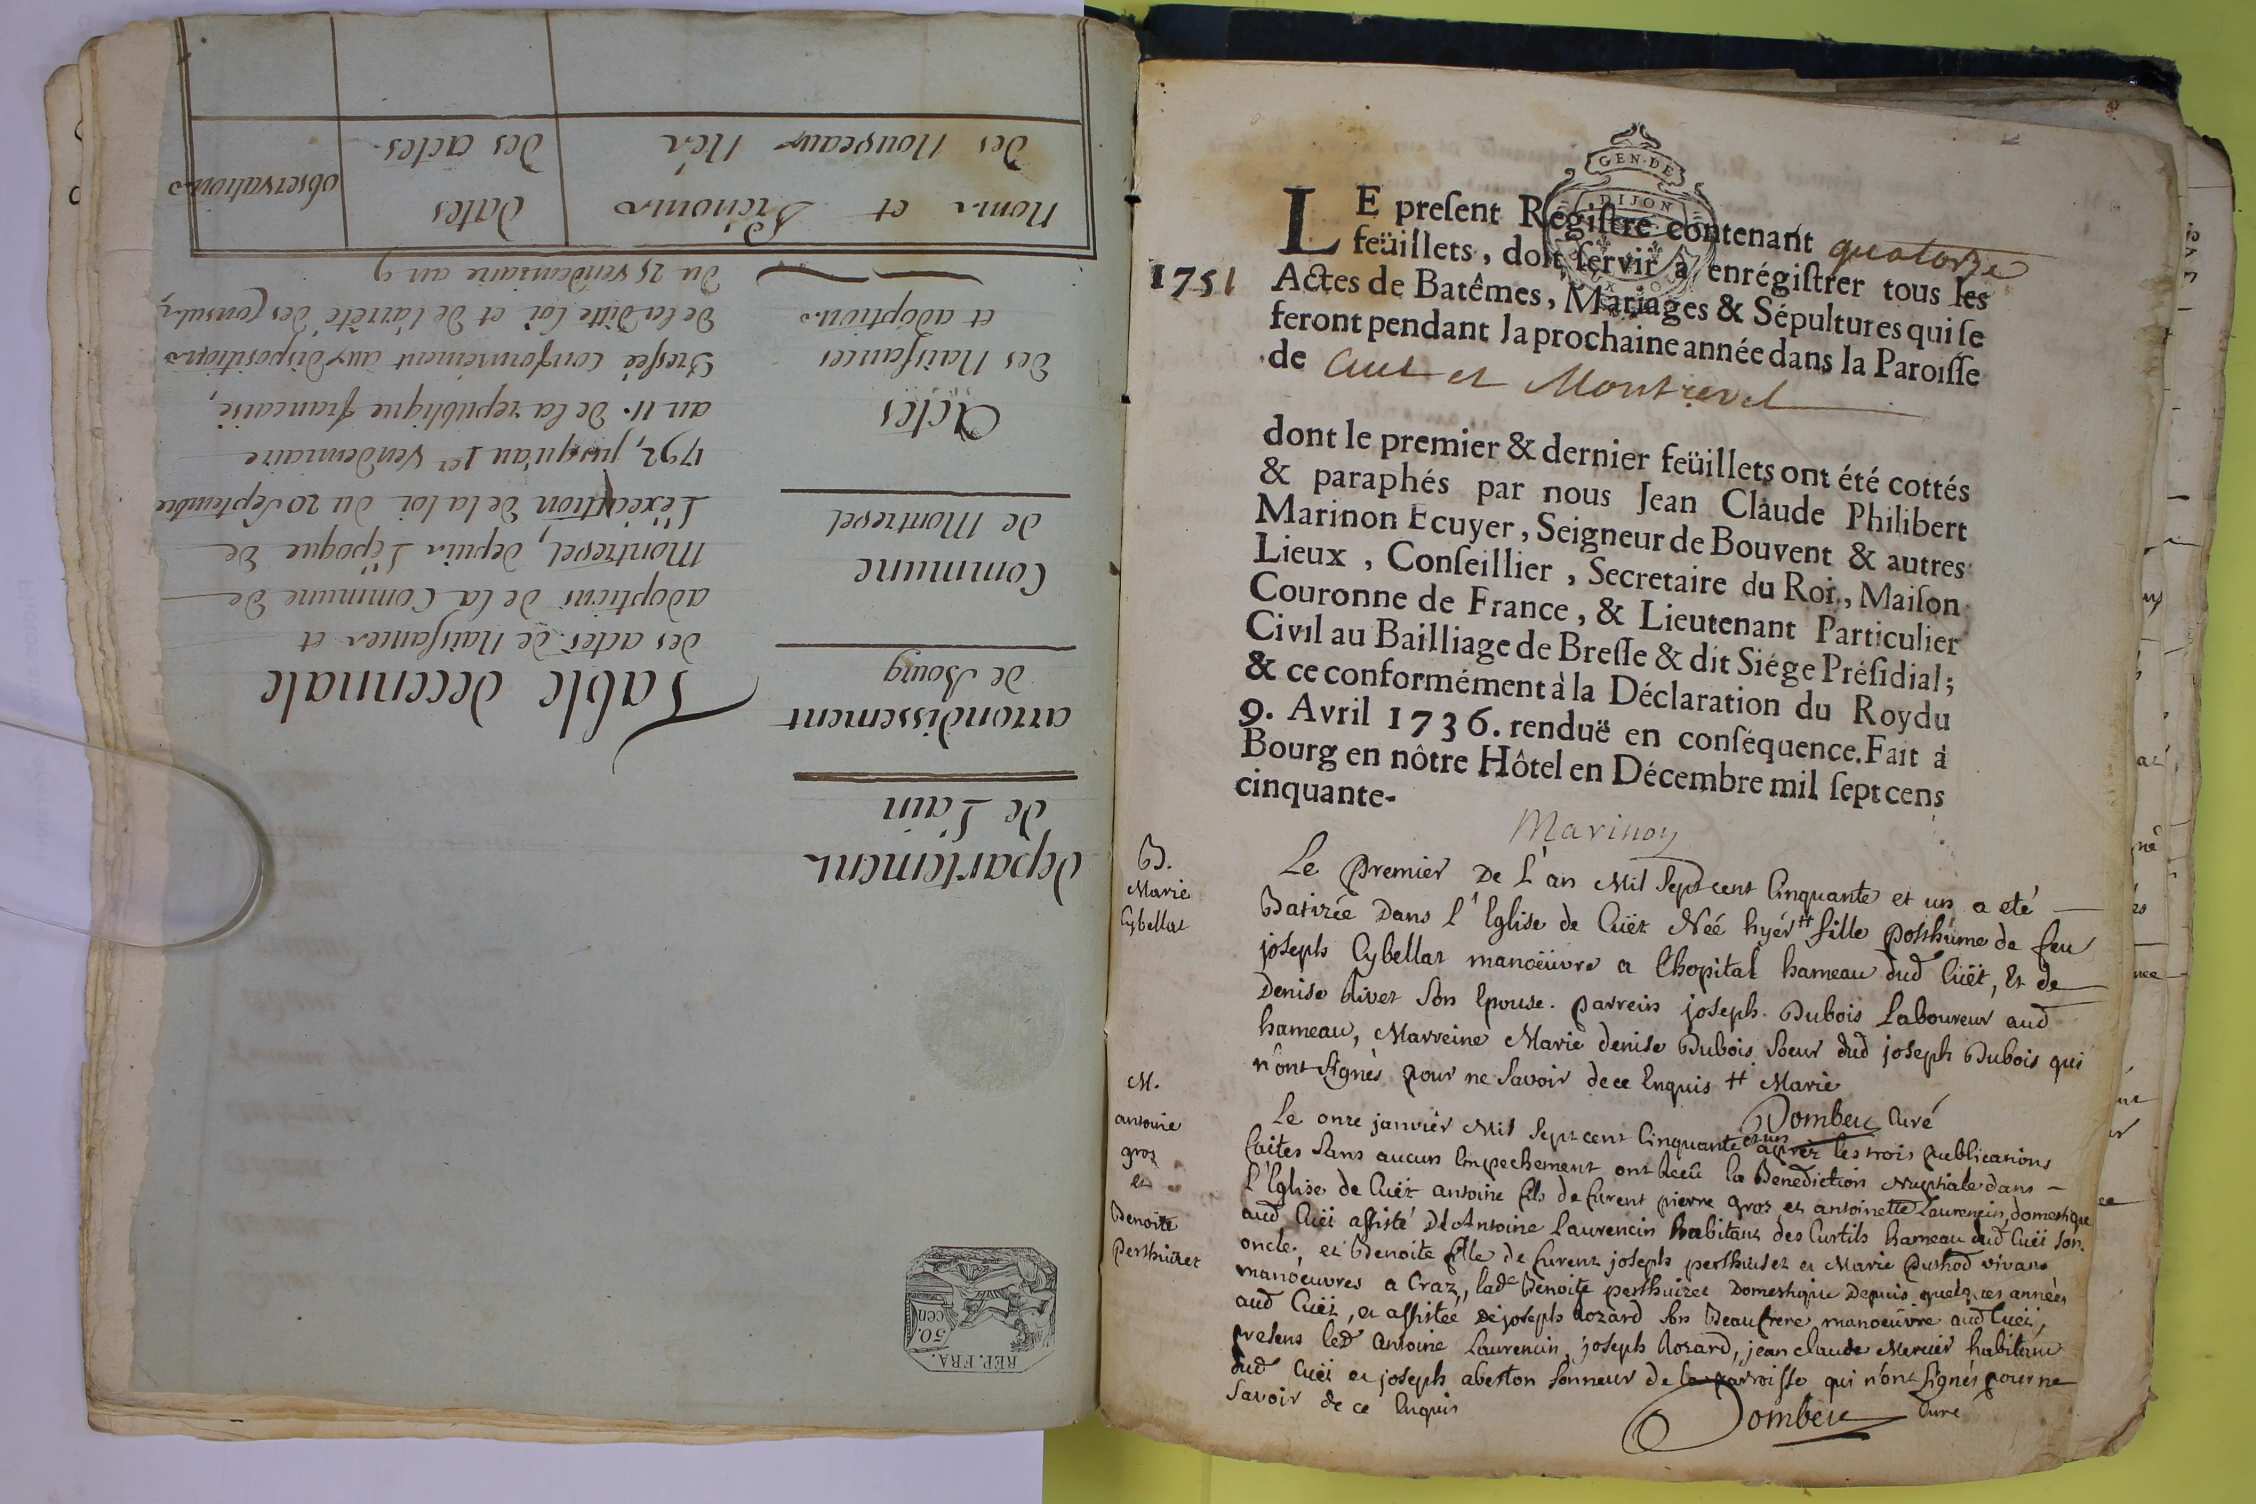 departement
de L'ain
arrondissement
de Bourg
Commune
de Montrevel
Actes
des Naissances
et adoptions
Table decennale
des actes de Naissances et
adoptions de la Commune de
Montrevel, depuis L'époque de
L'éxécution de la loi du 20 Septembre
1792, jusqu'au 1er Vendemiaire
an 11. de la republique francaise,
Dressée conformément aux dispositions
de la ditte loi et de l'arrêté des Consuls,
du 25 vendemiaire an 9
Noms et Prénoms
des Nouveaux Nés
dates
des actes.
observations
REP. FRA.
50.
cen
GEN. DE
DIJON
1751
LE preſent Regiſtre contenant quatorze
feüillets, doit ſervir à enrégiſtrer tous les
Actes de Batêmes, Mariages & Sépultures qui ſe
feront pendant la prochaine année dans la Paroiſſe
de Cuet et Montrevel
dont le premier & dernier feüillets ont été cottés
& paraphés par nous Jean Claude Philibert
Marinon Ecuyer, Seigneur de Bouvent & autres
Lieux, Conſeillier, Secretaire du Roi, Maiſon
Couronne de France, & Lieutenant Particulier
Civil au Bailliage de Breſſe & dit Siége Préſidial;
& ce conformément à la Déclaration du Roy du
9. Avril 1736. renduë en conſéquence. Fait à
Bourg en nôtre Hôtel en Décembre mil ſept cens
cinquante-
Marinon
B.
Marie
Cybellat
Le premier De L'an Mil Sept cent Cinquante et un a eté
Batizée Dans l'Eglise de Cuët Née hyér # fille posthume de feu
joseph Cybellat manoeüvre a l'hopital hameau dud Cuët, et de
Denise Vivet Son Epouse. parrein joseph Dubois Laboureur aud
hameau, Marreine Marie denise Dubois Soeur dud joseph Dubois qui
n'ont Signés pour ne Savoir de ce Enquis # Marie
Dombey Curé
M.
antoine
gros
et
Benoite
perthuizet
Le onze janvier Mil Sept cent Cinquante et un après les trois publications
faites Sans aucun Empechement ont Receu la Benediction Nuptiale dans
l'Eglise de Cuët antoine fils de furent pierre gros et antoinette Laurencin, domestique
aud Cuët assisté D'Antoine Laurencin habitant des Curtils hameau dud Cuët Son
oncle, et Benoite fille de furent joseph perthuizet et Marie puthod vivans
manoeuvres a Craz, lade Benoite perthuizet Domestique Depuis quelques années
aud Cuët, et assistée de joseph Rozard Son Beaufrere manoeüvre aud Cuët,
presens led Antoine Laurencin, joseph Rozard, jean claude Mercier habitans
dud Cuët et joseph aberton Sonneur de la parroisse qui n'ont Signés pour ne
Savoir de ce Enquis
Dombey Curé